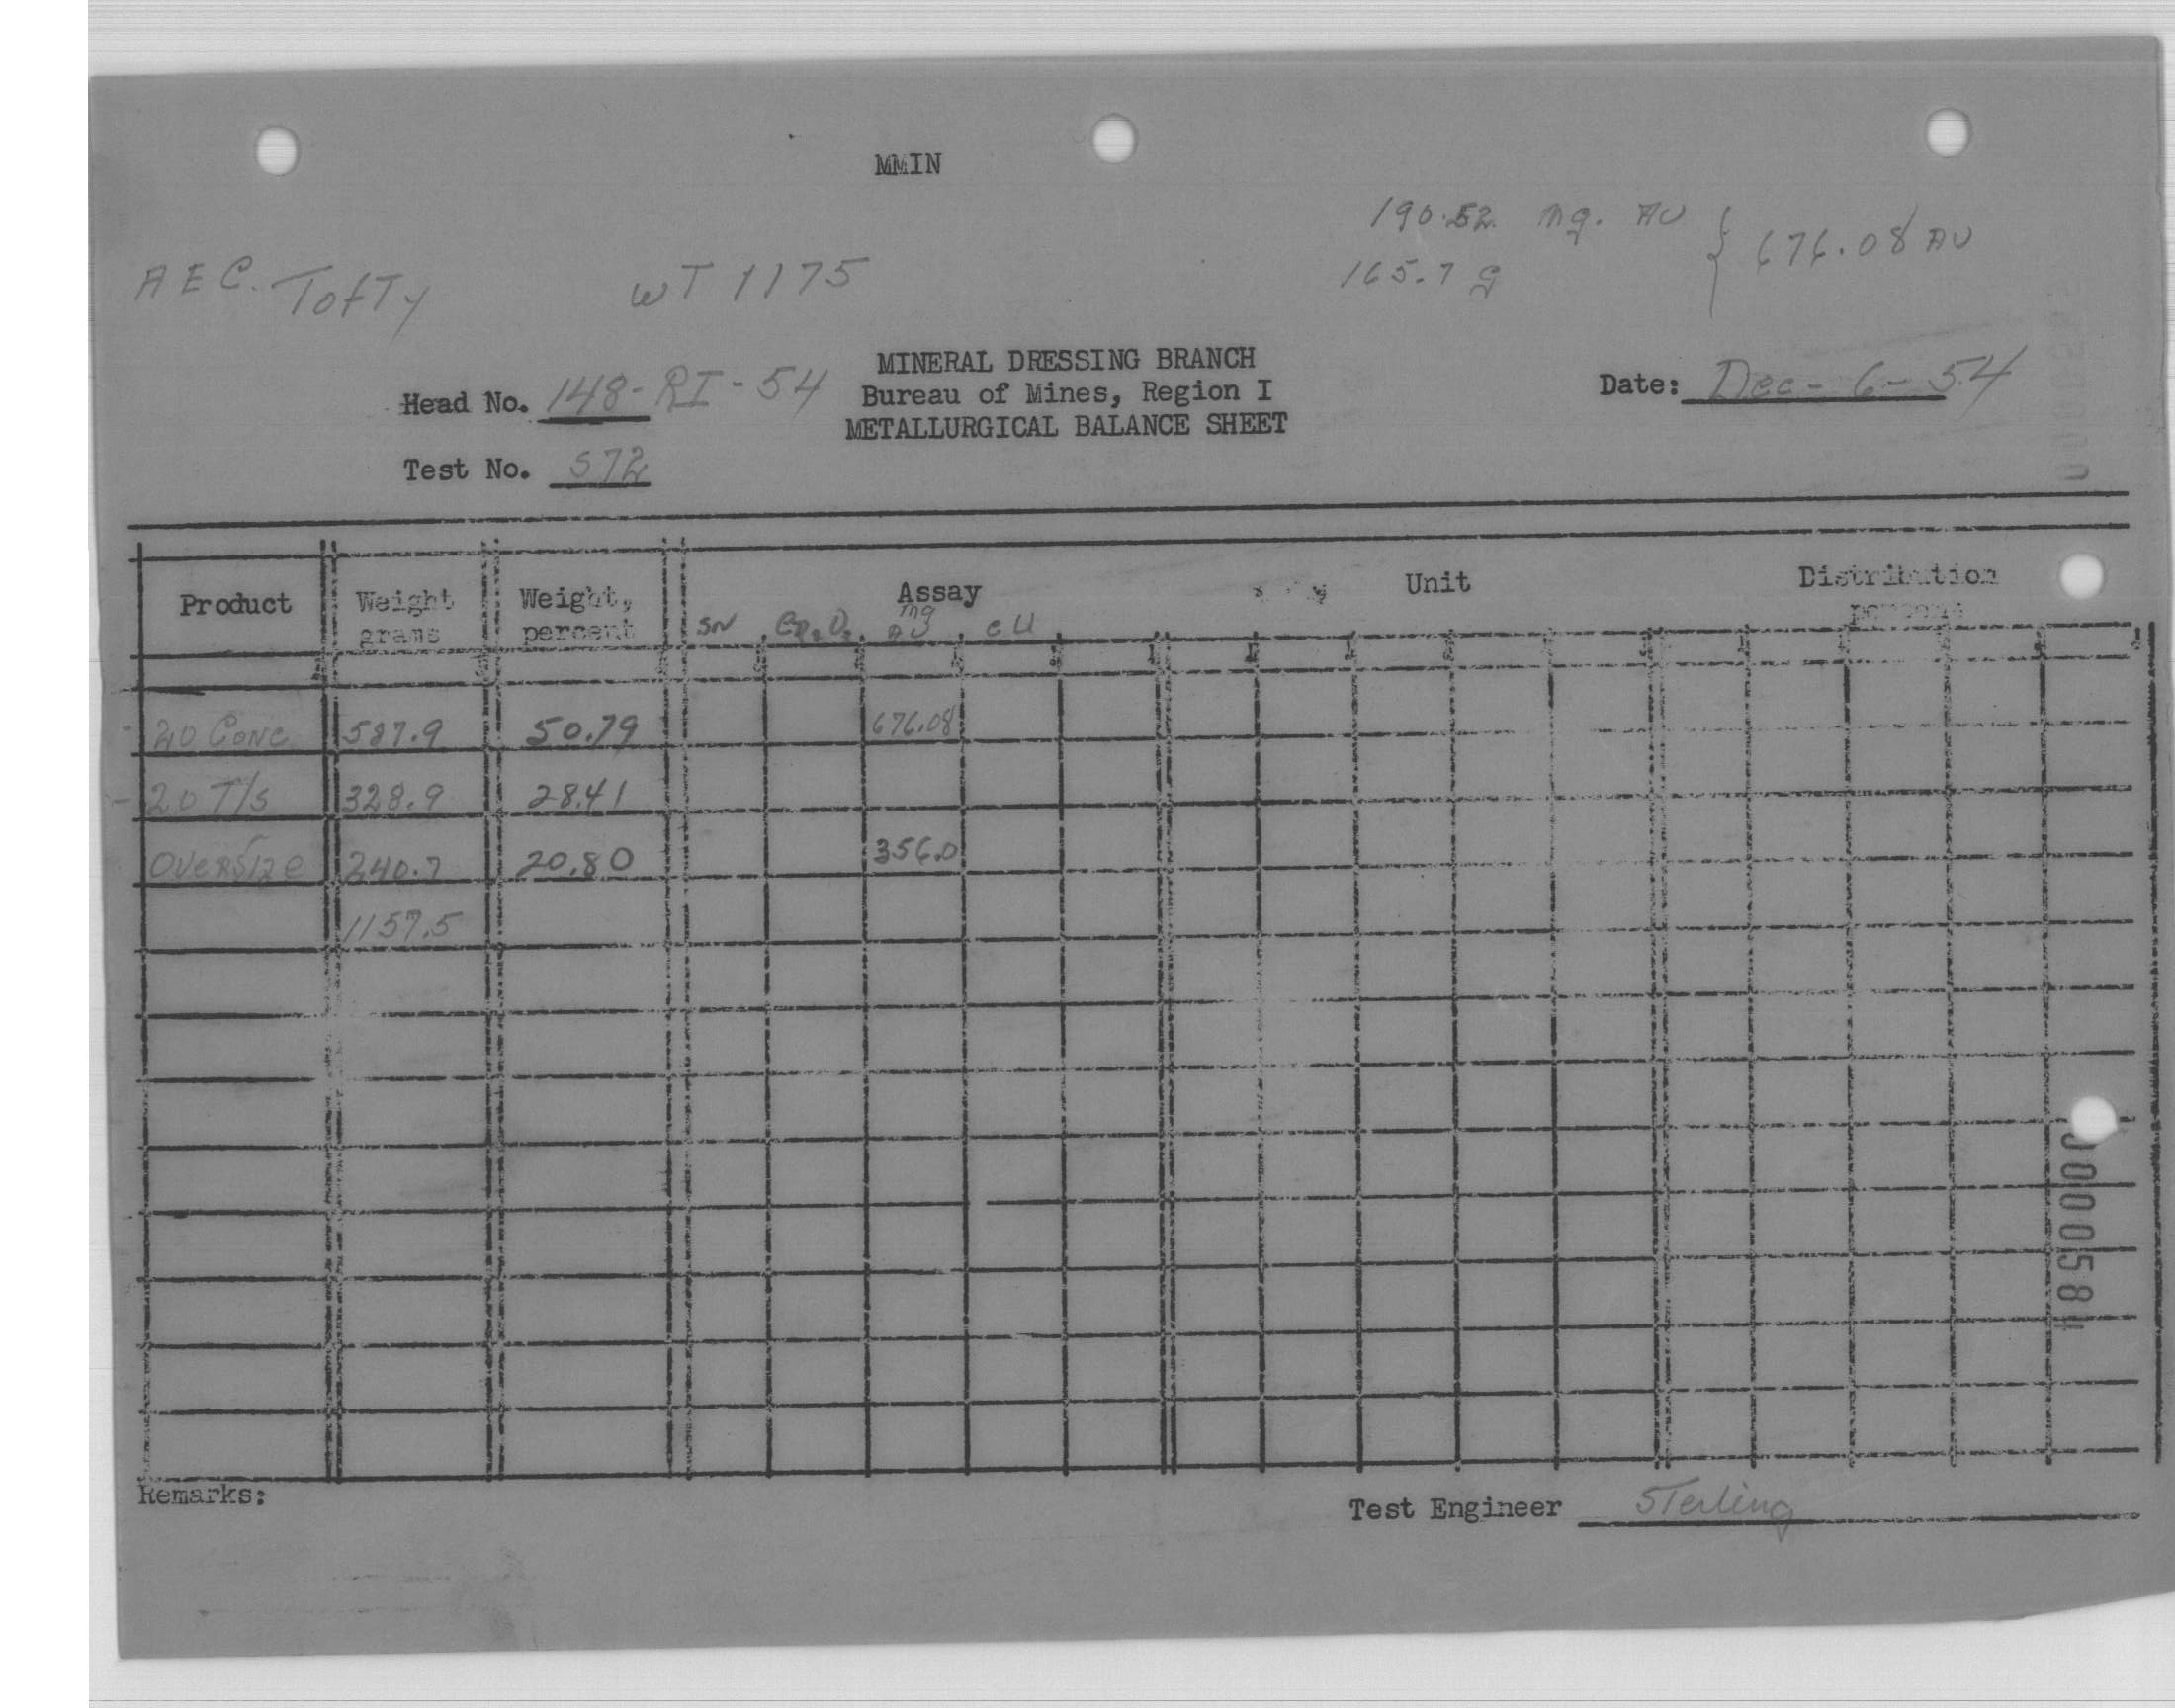 MMIN
190.52 mg. AU } 676.08 AU
165.7 g
A E C. Tofty WT 1175
MINERAL DRESSING BRANCH
Head No. 148-RI-54 Bureau of Mines, Region I Date: Dec-6-54
METALLURGICAL BALANCE SHEET
Test No. 572
Product Weight grams Weight, percent Assay Unit Distribution percent
SN mg AU CU
-20 Conc 587.9 50.79 676.08
-20 T/s 328.9 28.41
Oversize 240.7 20.80 356.0
1157.5
Remarks:
Test Engineer Sterling